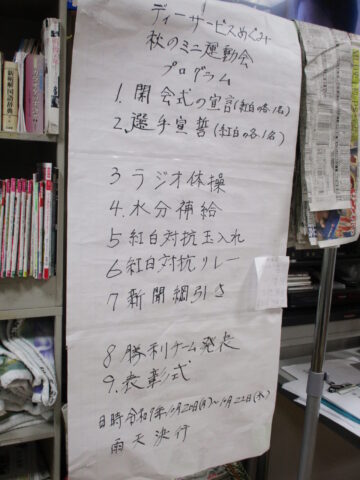 ディーサービスめぐみ
秋のミニ運動会
プログラム
1. 開会式の宣言(紅白の各1名)
2. 選手宣誓(紅白の各1名)
3 ラジオ体操
4. 水分補給
5 紅白対抗玉入れ
6 紅白対抗リレー
7 新聞綱引き
8 勝利チーム発表
9. 表彰式
日時 令和7年10月20日(月)~10月22日(水)
雨天決行
新明解国語辞典